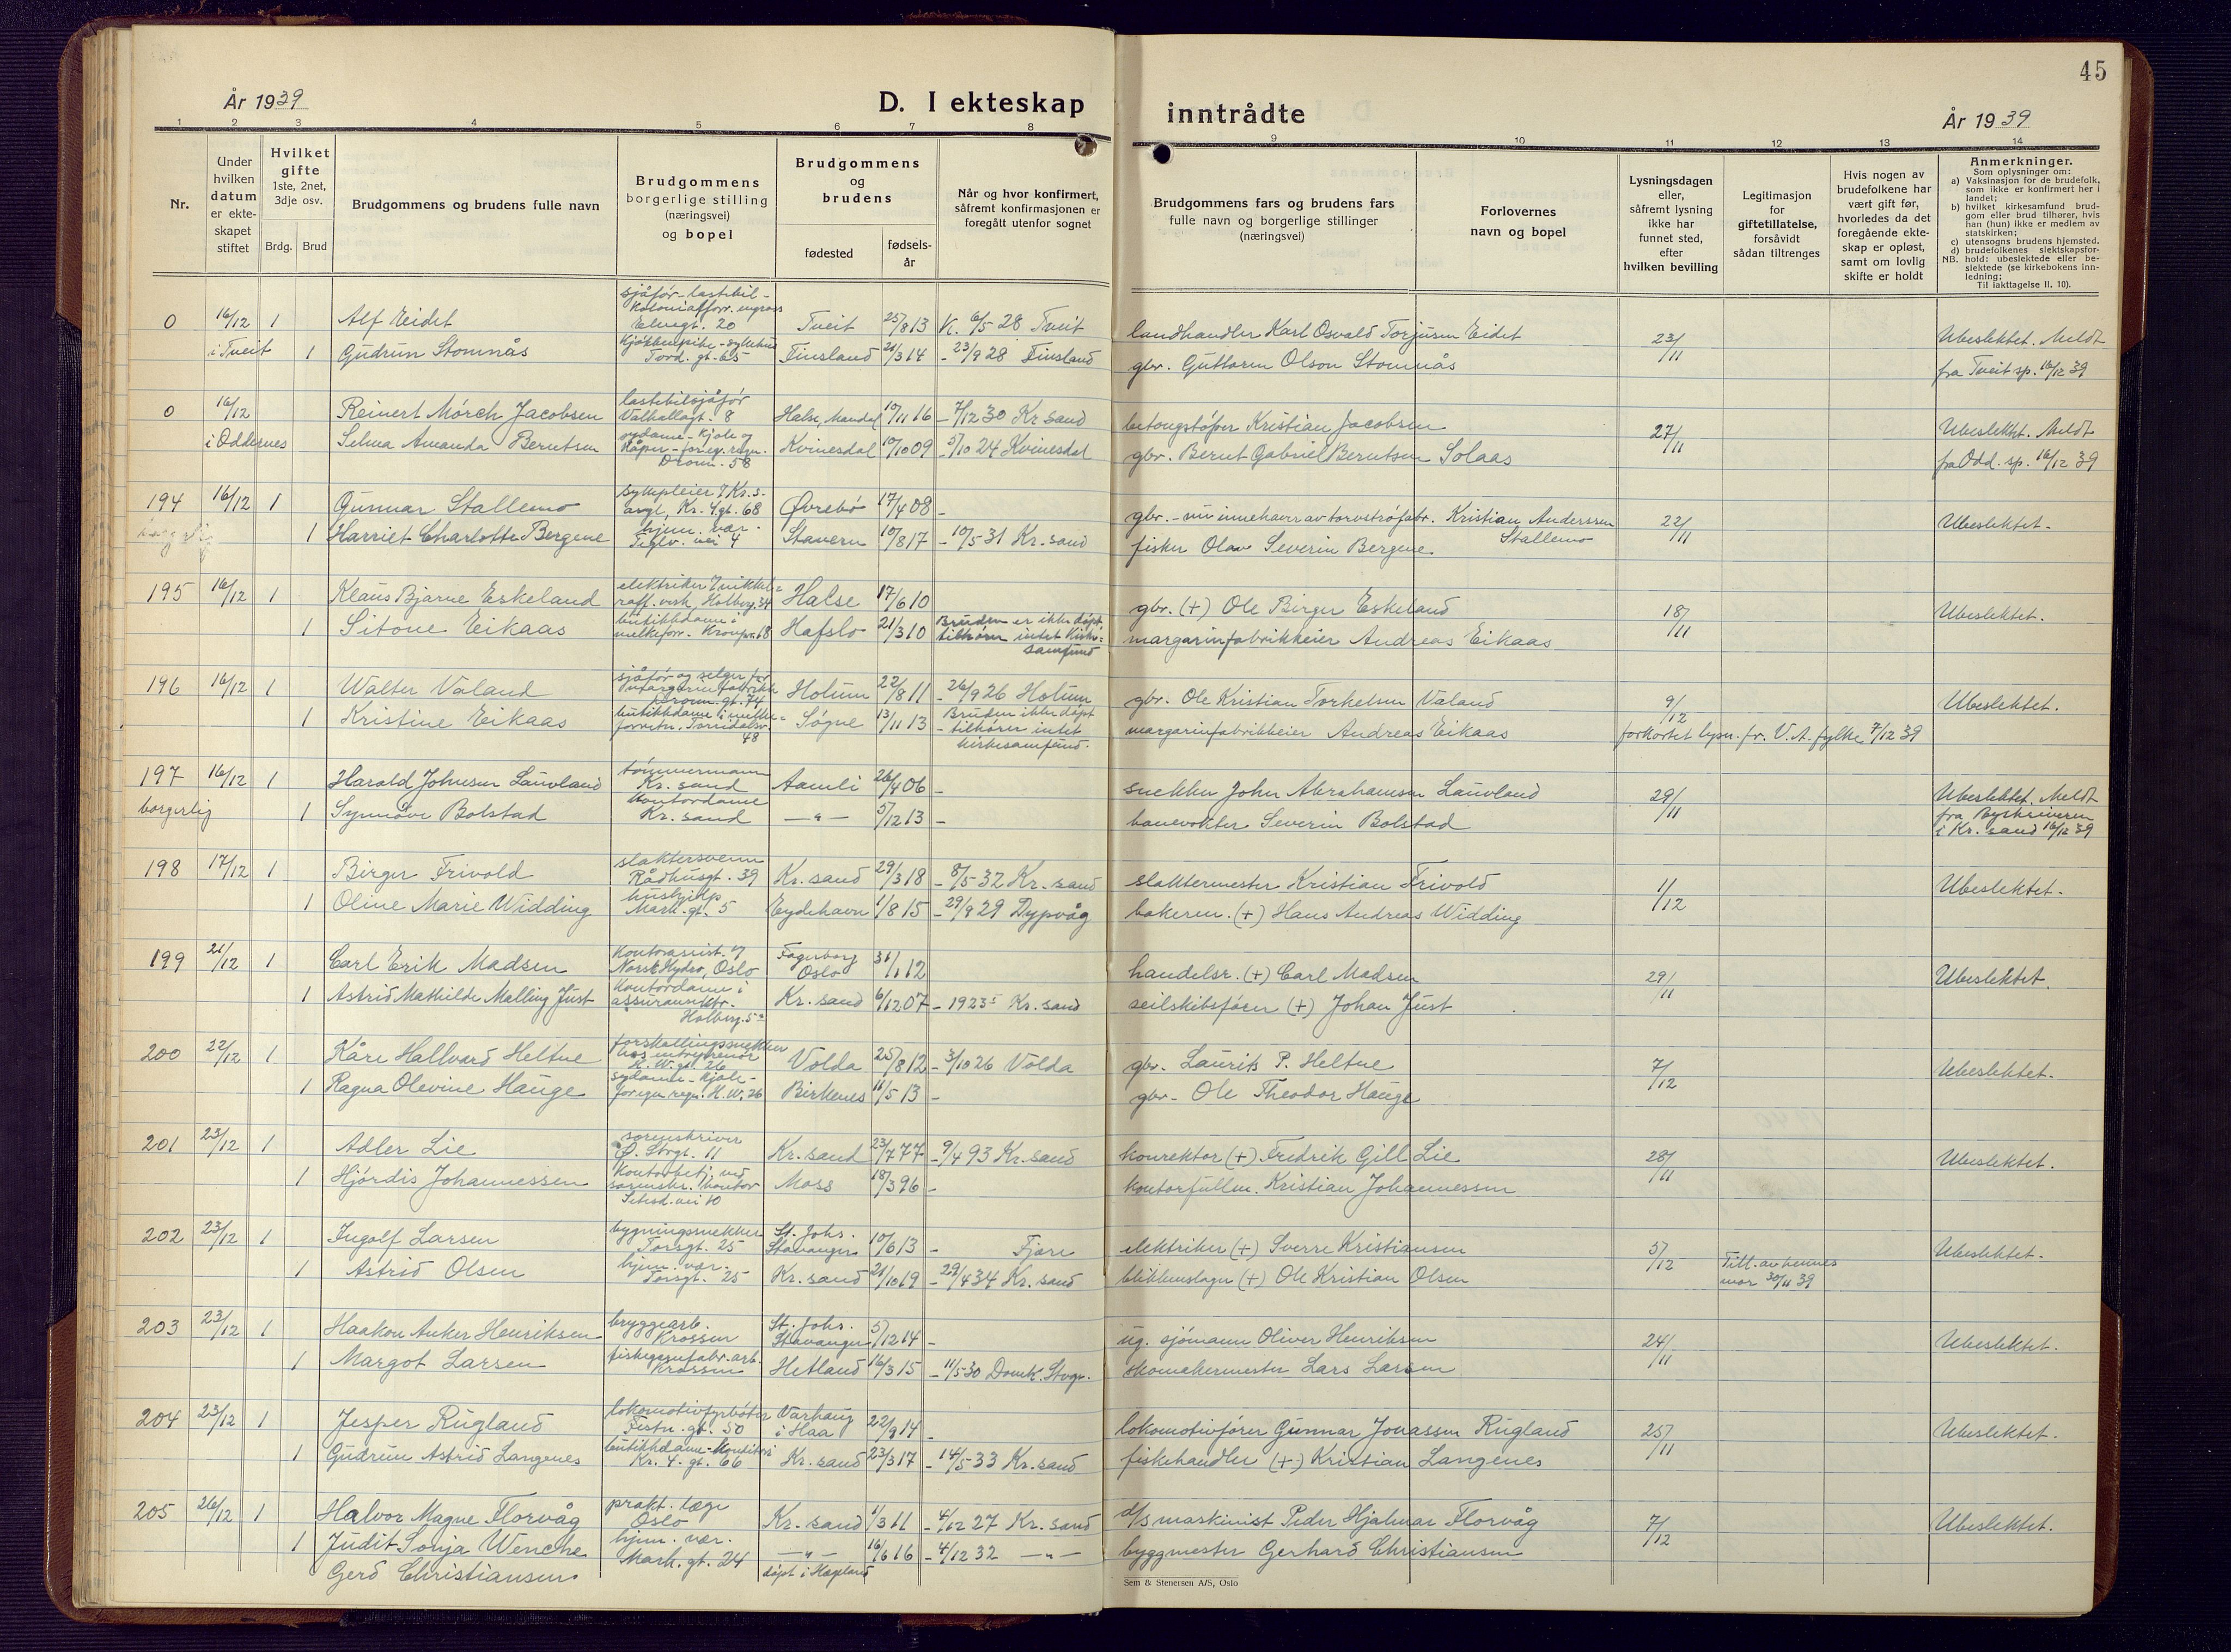 45
År 1939
D. I ekteskap
inntrådte
År 1939
1 2 3 4 5 6 7 8 9 10 11 12 13 14
Nr.
Under hvilken datum er ekteskapet stiftet
Hvilket gifte 1ste, 2net, 3dje osv.
Brdg. Brud
Brudgommens og brudens fulle navn
Brudgommens borgerlige stilling (næringsvei) og bopel
Brudgommens og brudens
fødested
fødselsår
Når og hvor konfirmert, såfremt konfirmasjonen er foregått utenfor sognet
Brudgommens fars og brudens fars fulle navn og borgerlige stillinger (næringsvei)
Forlovernes navn og bopel
Lysningsdagen eller, såfremt lysning ikke har funnet sted, efter hvilken bevilling
Legitimasjon for giftetillatelse, forsåvidt sådan tiltrenges
Hvis nogen av brudefolkene har vært gift før, hvorledes da det foregående ekteskap er opløst, samt om lovlig skifte er holdt
Anmerkninger.
Som oplysninger om:
a) Vaksinasjon for de brudefolk, som ikke er konfirmert her i landet;
b) hvilket kirkesamfund brudgom eller brud tilhører, hvis han (hun) ikke er medlem av statskirken;
c) utensogns brudens hjemsted.
d) brudefolkenes slektskapsforhold: ubeslektede eller beslektede (se kirkebokens innledning;
NB.
Til iakttagelse II, 10).
0 16/12 1 Alf Eidet sjåfør-lastebil- Elvegt. 20 Tveit 25/8 13 K. 6/5 28 Tveit landhandler Karl Osvald Torjusen Eidet 23/11 Ubeslektet. Meldt
i Tveit 1 Gudrun Stomnås Tord. gt. 65 Finsland 21/3 14 - 23/9 28 Finsland gbr. Guttorm Olson Stomnås fra Tveit sp. 16/12 39
0 16/12 Reinert Mørch Jacobsen lastebilsjåfør Valhallagt. 8 Halse, Mandal 19/11 16 - 7/12 30 Kr. sand betongstøper Kristian Jacobsen 27/11 Ubeslektet. Meldt
i Oddernes Selma Amanda Berntsen sydame - kjole og kåper - for eg. regn. Dronn. 58 Kvinesdal 10/10 09 - 5/10 24 Kvinesdal gbr. Bernt Gabriel Berntsen Solaas fra Odd. sp. 16/12 39
194 16/12 1 Gunnar Stallemo sykepleier v/ Kr.s. Kr. 4 gt. 68 Øvrebø 17/4 08 - gbr. - nu innehaver av torvstrøfabr. Kristian Anderssen Stallemo 22/11 Ubeslektet.
borgerlig 1 Harriet Charlotte Bergene hjem. vær. Teglv. vei 4 Stavern 10/8 17 - 10/5 31 Kr. sand fisker Olav Severin Bergene
195 16/12 1 Klaus Bjarne Eskeland elektriker v/ nikkelraff. verk, Holberg. 34 Halse 17/6 10 gbr. (+) Ole Birger Eskeland 18/11 Ubeslektet.
1 Sitove Eikaas butikkdame i melkeforr. Kronpr. 68 Hafslo 21/3 10 Bruden er ikke døpt tilhører intet kirkesamfund margarinfabrikkeier Andreas Eikaas
196 16/12 1 Walter Valand sjåfør og selger for margarinfabrikk Dronn. gt. 74 Holum 22/8 11 - 26/9 26 Holum gbr. Ole Kristian Torkelsen Valand 9/12 Ubeslektet.
1 Kristine Eikaas butikkdame i melkeforretn. Torridalsv. 48 Søgne 13/11 13 Bruden ikke døpt - tilhører intet kirkesamfund. margarinfabrikkeier Andreas Eikaas forkortet lysn. fr. V. A. fylke 7/12 39
197 16/12 1 Harald Johnsen Lauvland tømmermann Kr. sand Aamli 26/4 06 - snekker John Abrahamsen Lauvland 29/11 Ubeslektet. Meldt
borgerlig 1 Synnøve Bolstad kontordame Kr. sand —"— 5/12 13 - banevokter Severin Bolstad fra Byskriveren i Kr. sand 16/12 39
198 17/12 1 Birger Frivold slaktersvenn Rådhusgt. 39 Kr. sand 29/3 18 - 8/5 32 Kr. sand slaktermester Kristian Frivold 1/12 Ubeslektet.
1 Oline Marie Widding hushjelp Mark. gt. 5 Eydehavn 1/8 15 - 29/9 29 Dypvåg bakerm. (+) Hans Andreas Widding
199 21/12 1 Carl Erik Madsen kontorassist. v/ Norsk Hydro, Oslo Fagerborg Oslo 31/1 12 handelsr. (+) Carl Madsen 29/11 Ubeslektet.
1 Astrid Mathilde Malling Just kontordame i assuransektr. Holberg. 5a Kr. sand 6/12 07 - 1923 Kr. sand seilskibsfører (+) Johan Just
200 22/12 1 Kåre Hallvard Heltne forskallingssnekker hos entreprenør H. W. gt. 26 Volda 25/8 12 - 3/10 26 Volda gbr. Laurits P. Heltne 7/12 Ubeslektet.
1 Ragna Olevine Hauge sydame - kjole - for egen regn. H. W. 26 Birkenes 11/5 13 - gbr. Ole Theodor Hauge
201 23/12 1 Adler Lie sorenskriver Ø. Strgt. 11 Kr. sand 23/7 77 - 9/4 93 Kr. sand konrektor (+) Fredrik Gill Lie 28/11 Ubeslektet.
1 Hjørdis Johannessen kontorbetj. ved sorenskr. kontor Setesd. vei 10 Moss 18/3 96 - kontorfullm. Kristian Johannessen
202 23/12 1 Ingolf Larsen bygningssnekker Torsgt. 25 St. Johs. Stavanger 10/6 13 - Fjære elektriker (+) Sverre Kristiansen 5/12 Ubeslektet.
1 Astrid Olsen hjem. vær. Torsgt. 25 Kr. sand 21/10 19 - 29/4 34 Kr. sand blikkenslager (+) Ole Kristian Olsen Till. av hennes mor 30/11 39
203 23/12 1 Haakon Anker Henriksen bryggearb. Krossen St. Johs. Stavanger 5/12 14 - ug. sjømann Oliver Henriksen 24/11 Ubeslektet.
1 Margot Larsen fiskegarnfabr. arb. Krossen Hetland 16/3 15 - 11/5 30 Domk. Stvgr. skomakermester Lars Larsen
204 23/12 1 Jesper Rugland lokomotivfyrbøter Festn. gt. 50 Varhaug i Haa 22/9 14 - lokomotivfører Gunnar Jonassen Rugland 25/11 Ubeslektet.
1 Gudrun Astrid Langenes butikkdame - konditori Kr. 4. gt. 66 Kr. sand 23/3 17 - 14/5 33 Kr. sand fiskehandler (+) Kristian Langenes
205 26/12 1 Halvor Magne Florvåg prakt. læge Oslo Kr. sand 1/3 11 - 4/12 27 Kr. sand d/s maskinist Peder Hjalmar Florvåg 7/12 Ubeslektet.
1 Judit Sonja Wenche Gerd Christiansen hjem. vær. Mark. gt. 24 —"— døpt i Hægeland 16/6 16 - 4/12 32 —"— byggmester Gerhard Christiansen
Sem & Stenersen A/S, Oslo